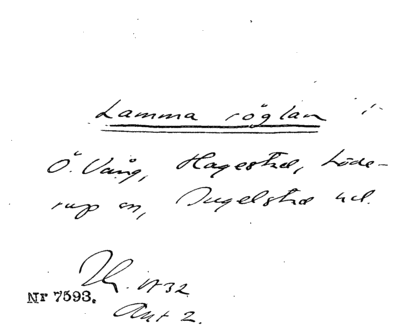 Lamma röglan
Ö. Vång, Hagestad, Löde-
rup sn, Ingelstad hd.
1932
Nr 7593.
Ant 2.